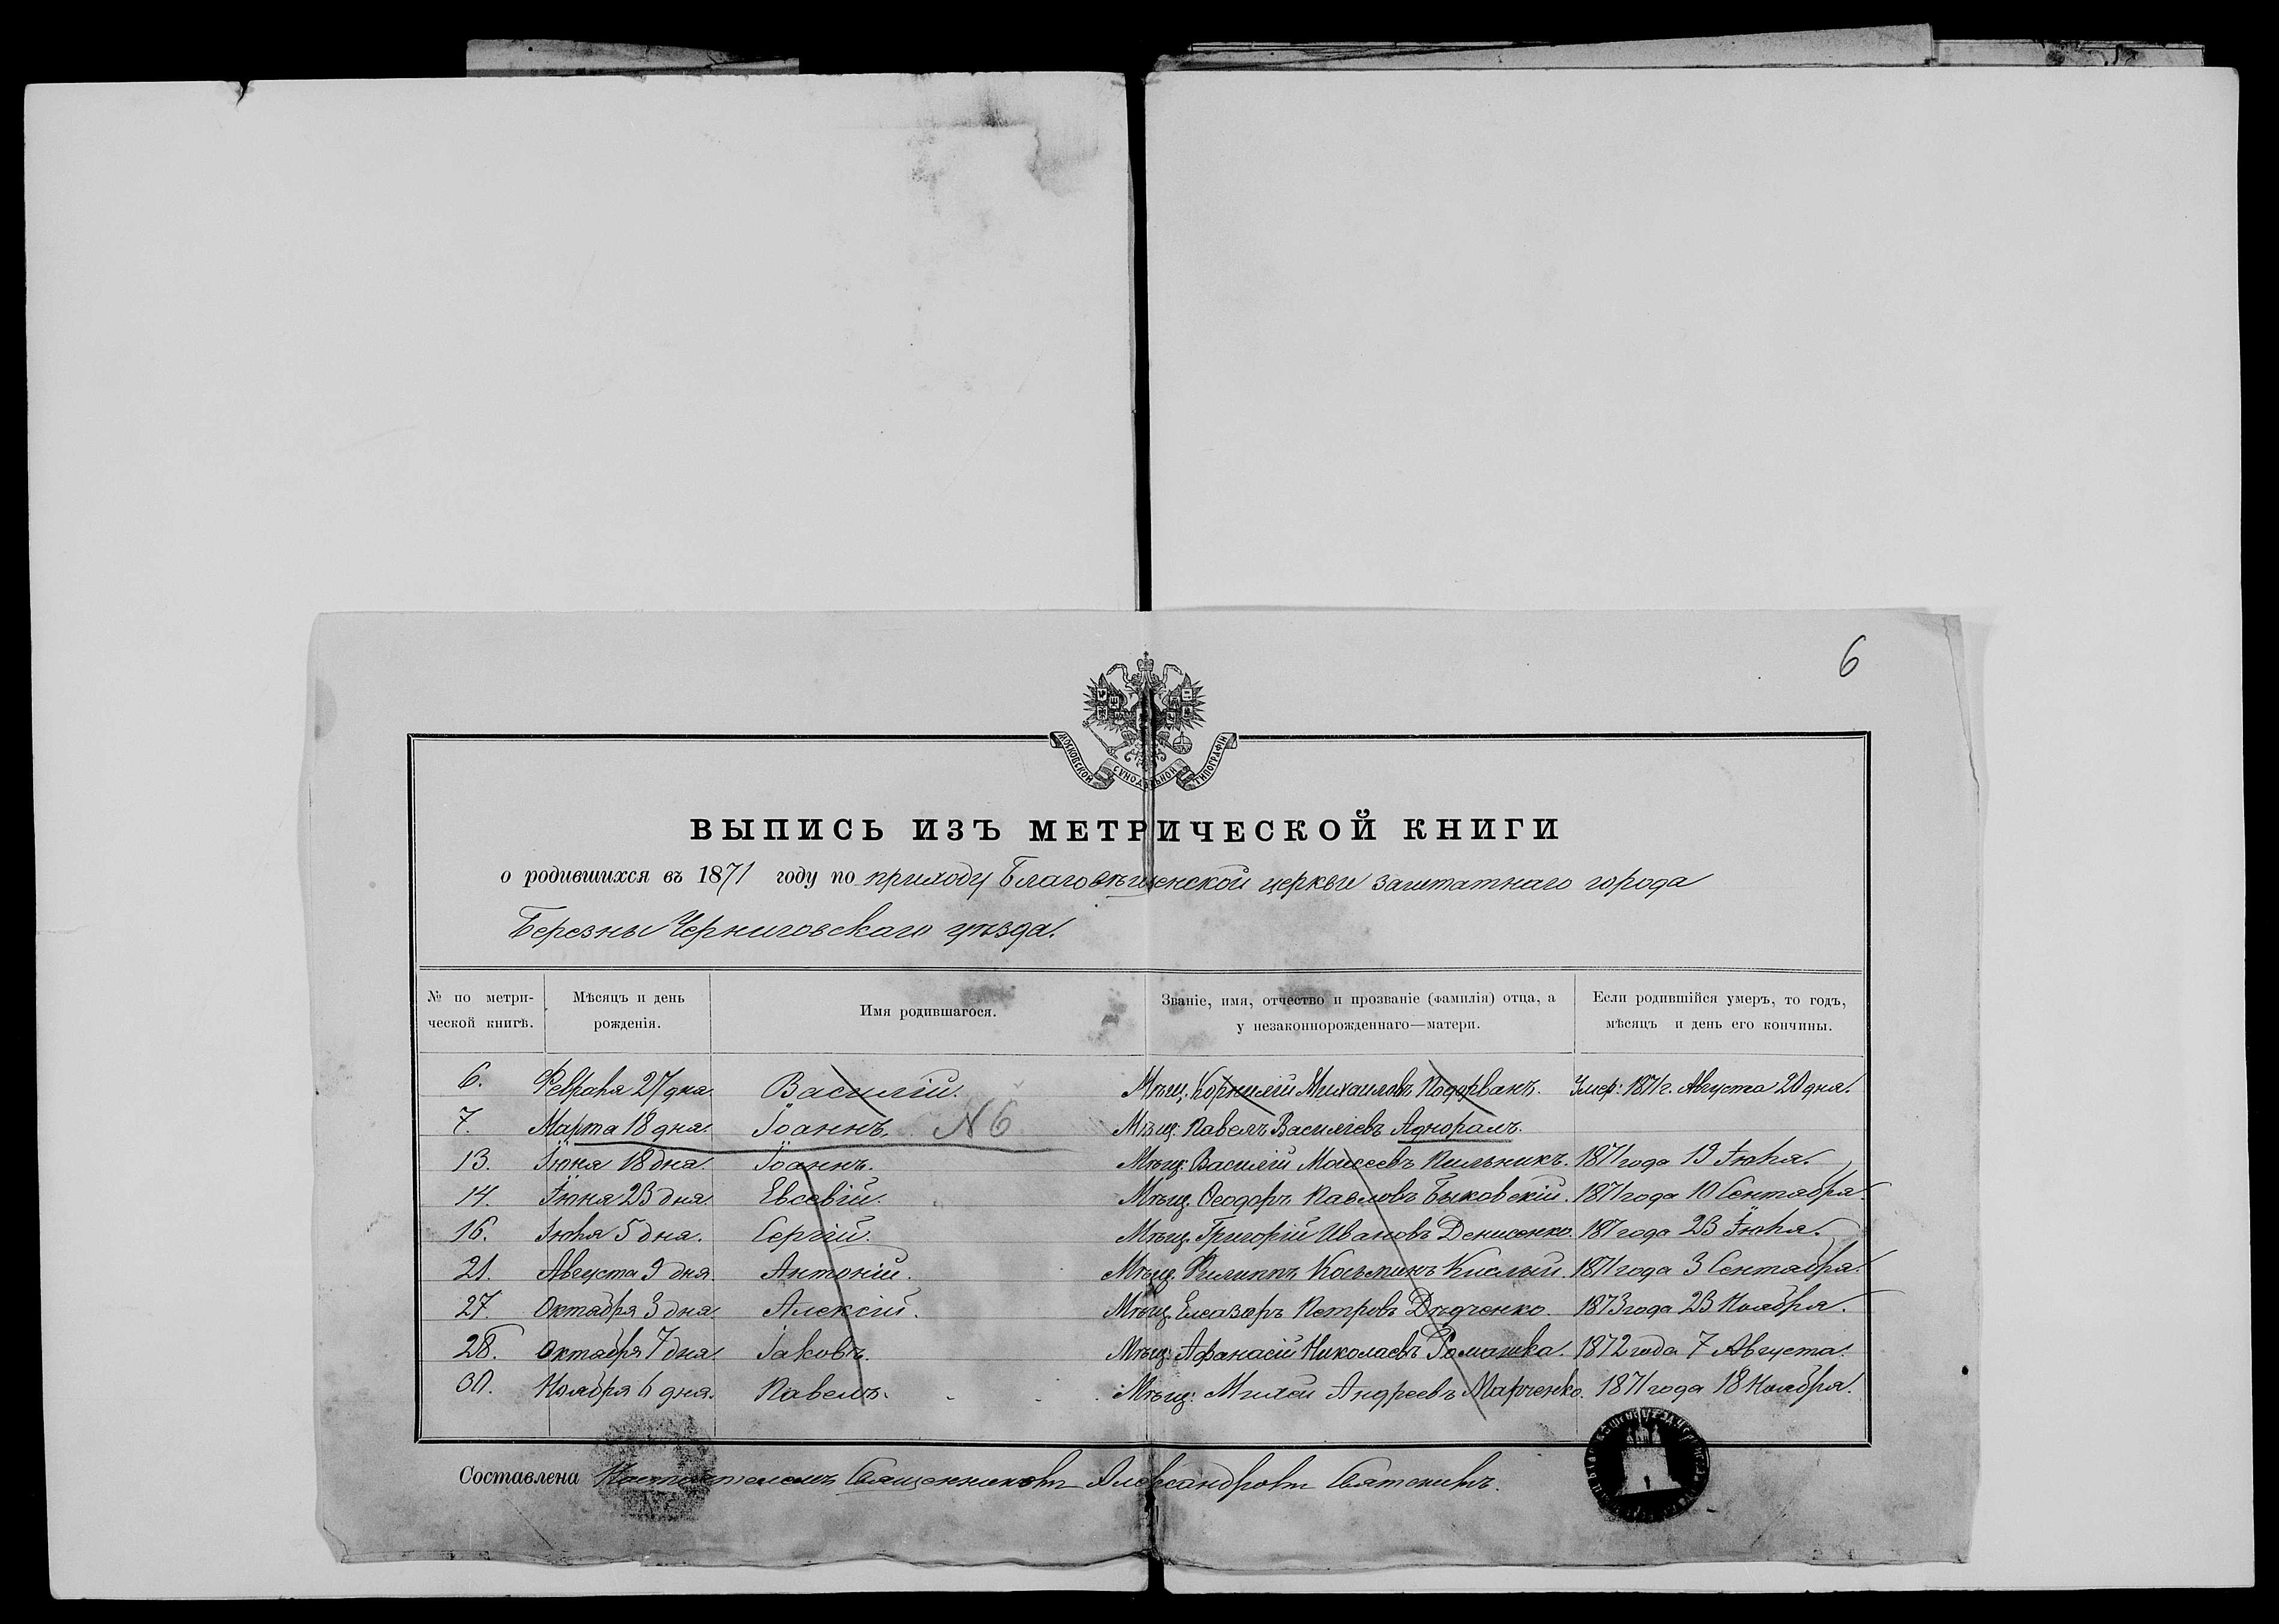 6
МОСКОВСКОЙ СУНОДАЛЬНОЙ ТИПОГРАФІИ
ВЫПИСЬ ИЗЪ МЕТРИЧЕСКОЙ КНИГИ
о родившихся въ 1871 году по приходу Благовѣщенской церкви заштатнаго города
Березны Черниговскаго уѣзда.
№ по метри- Мѣсяцъ и день Имя родившагося. Званіе, имя, отчество и прозваніе (фамилія) отца, а Если родившійся умеръ, то годъ,
ческой книгѣ. рожденія. у незаконнорожденнаго—матери. мѣсяцъ и день его кончины.
6. Февраля 27 дня. Василій. Мѣщ. Корнилій Михаиловъ Подорванъ. Умер: 1871 г. Августа 20 дня.
7. Марта 18 дня. Іоаннъ. N 6 Мѣщ. Павелъ Василіевъ Адноралъ.
13. Іюня 18 дня. Іоаннъ. Мѣщ. Василій Моисеевъ Пильникъ. 1871 года 19 Іюля.
14. Іюня 23 дня. Евсевій. Мѣщ. Ѳеодоръ Павловъ Быковскій. 1871 года 10 Сентября.
16. Іюля 5 дня. Сергій. Мѣщ. Григорій Ивановъ Денисенко. 187 года 23 Іюля.
21. Августа 9 дня. Антоній. Мѣщ. Филиппъ Косьминъ Кислый. 1871 года 3 Сентября.
27. Октября 3 дня. Алексій. Мѣщ. Елеазаръ Петровъ Дѣдченко. 1873 года 23 Ноября.
28. Октября 7 дня. Іаковъ. Мѣщ. Афанасій Николаевъ Ромашка. 1872 года 7 Августа.
30. Ноября 6 дня. Павелъ. Мѣщ: Михей Андреевъ Марченко. 1871 года 18 Ноября.
Составлена Настоятелемъ Священникомъ Александромъ